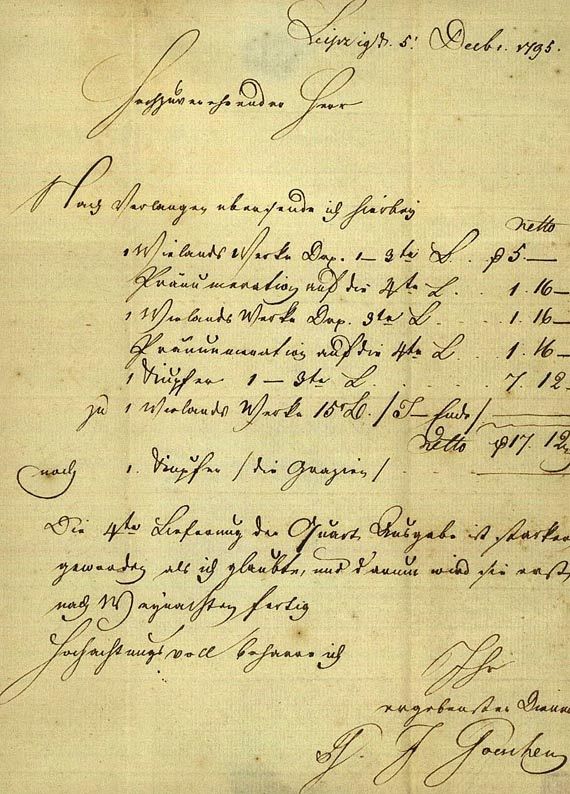 Leipzig d. 5. Decbr. 1795.
Hochzuverehrender Herr
Nach Verlangen übersende ich hierbey
netto
1 Wielands Werke Drp. 1 – 3te L. . 5 –
Pränumeration auf die 4te L. . 1. 16 –
1 Wielands Werke Drp. 3te L. . . 1. 16 –
Pränumeration auf die 4te L. 1. 16 –
1 Kupfer 1 – 3te L. . . . 7. 12 –
zu 1 Wielands Werke 15 B. / Ende /
netto 17. 12
noch 1. Kupfer / die Grazien /
Die 4te Lieferung der Quart Ausgabe ist starker
geworden als ich glaubte, und darum wird sie erst
nach Weynachten fertig
Hochachtungsvoll beharre ich
Ihr
ergebenster Diener
G. J. Goeschen